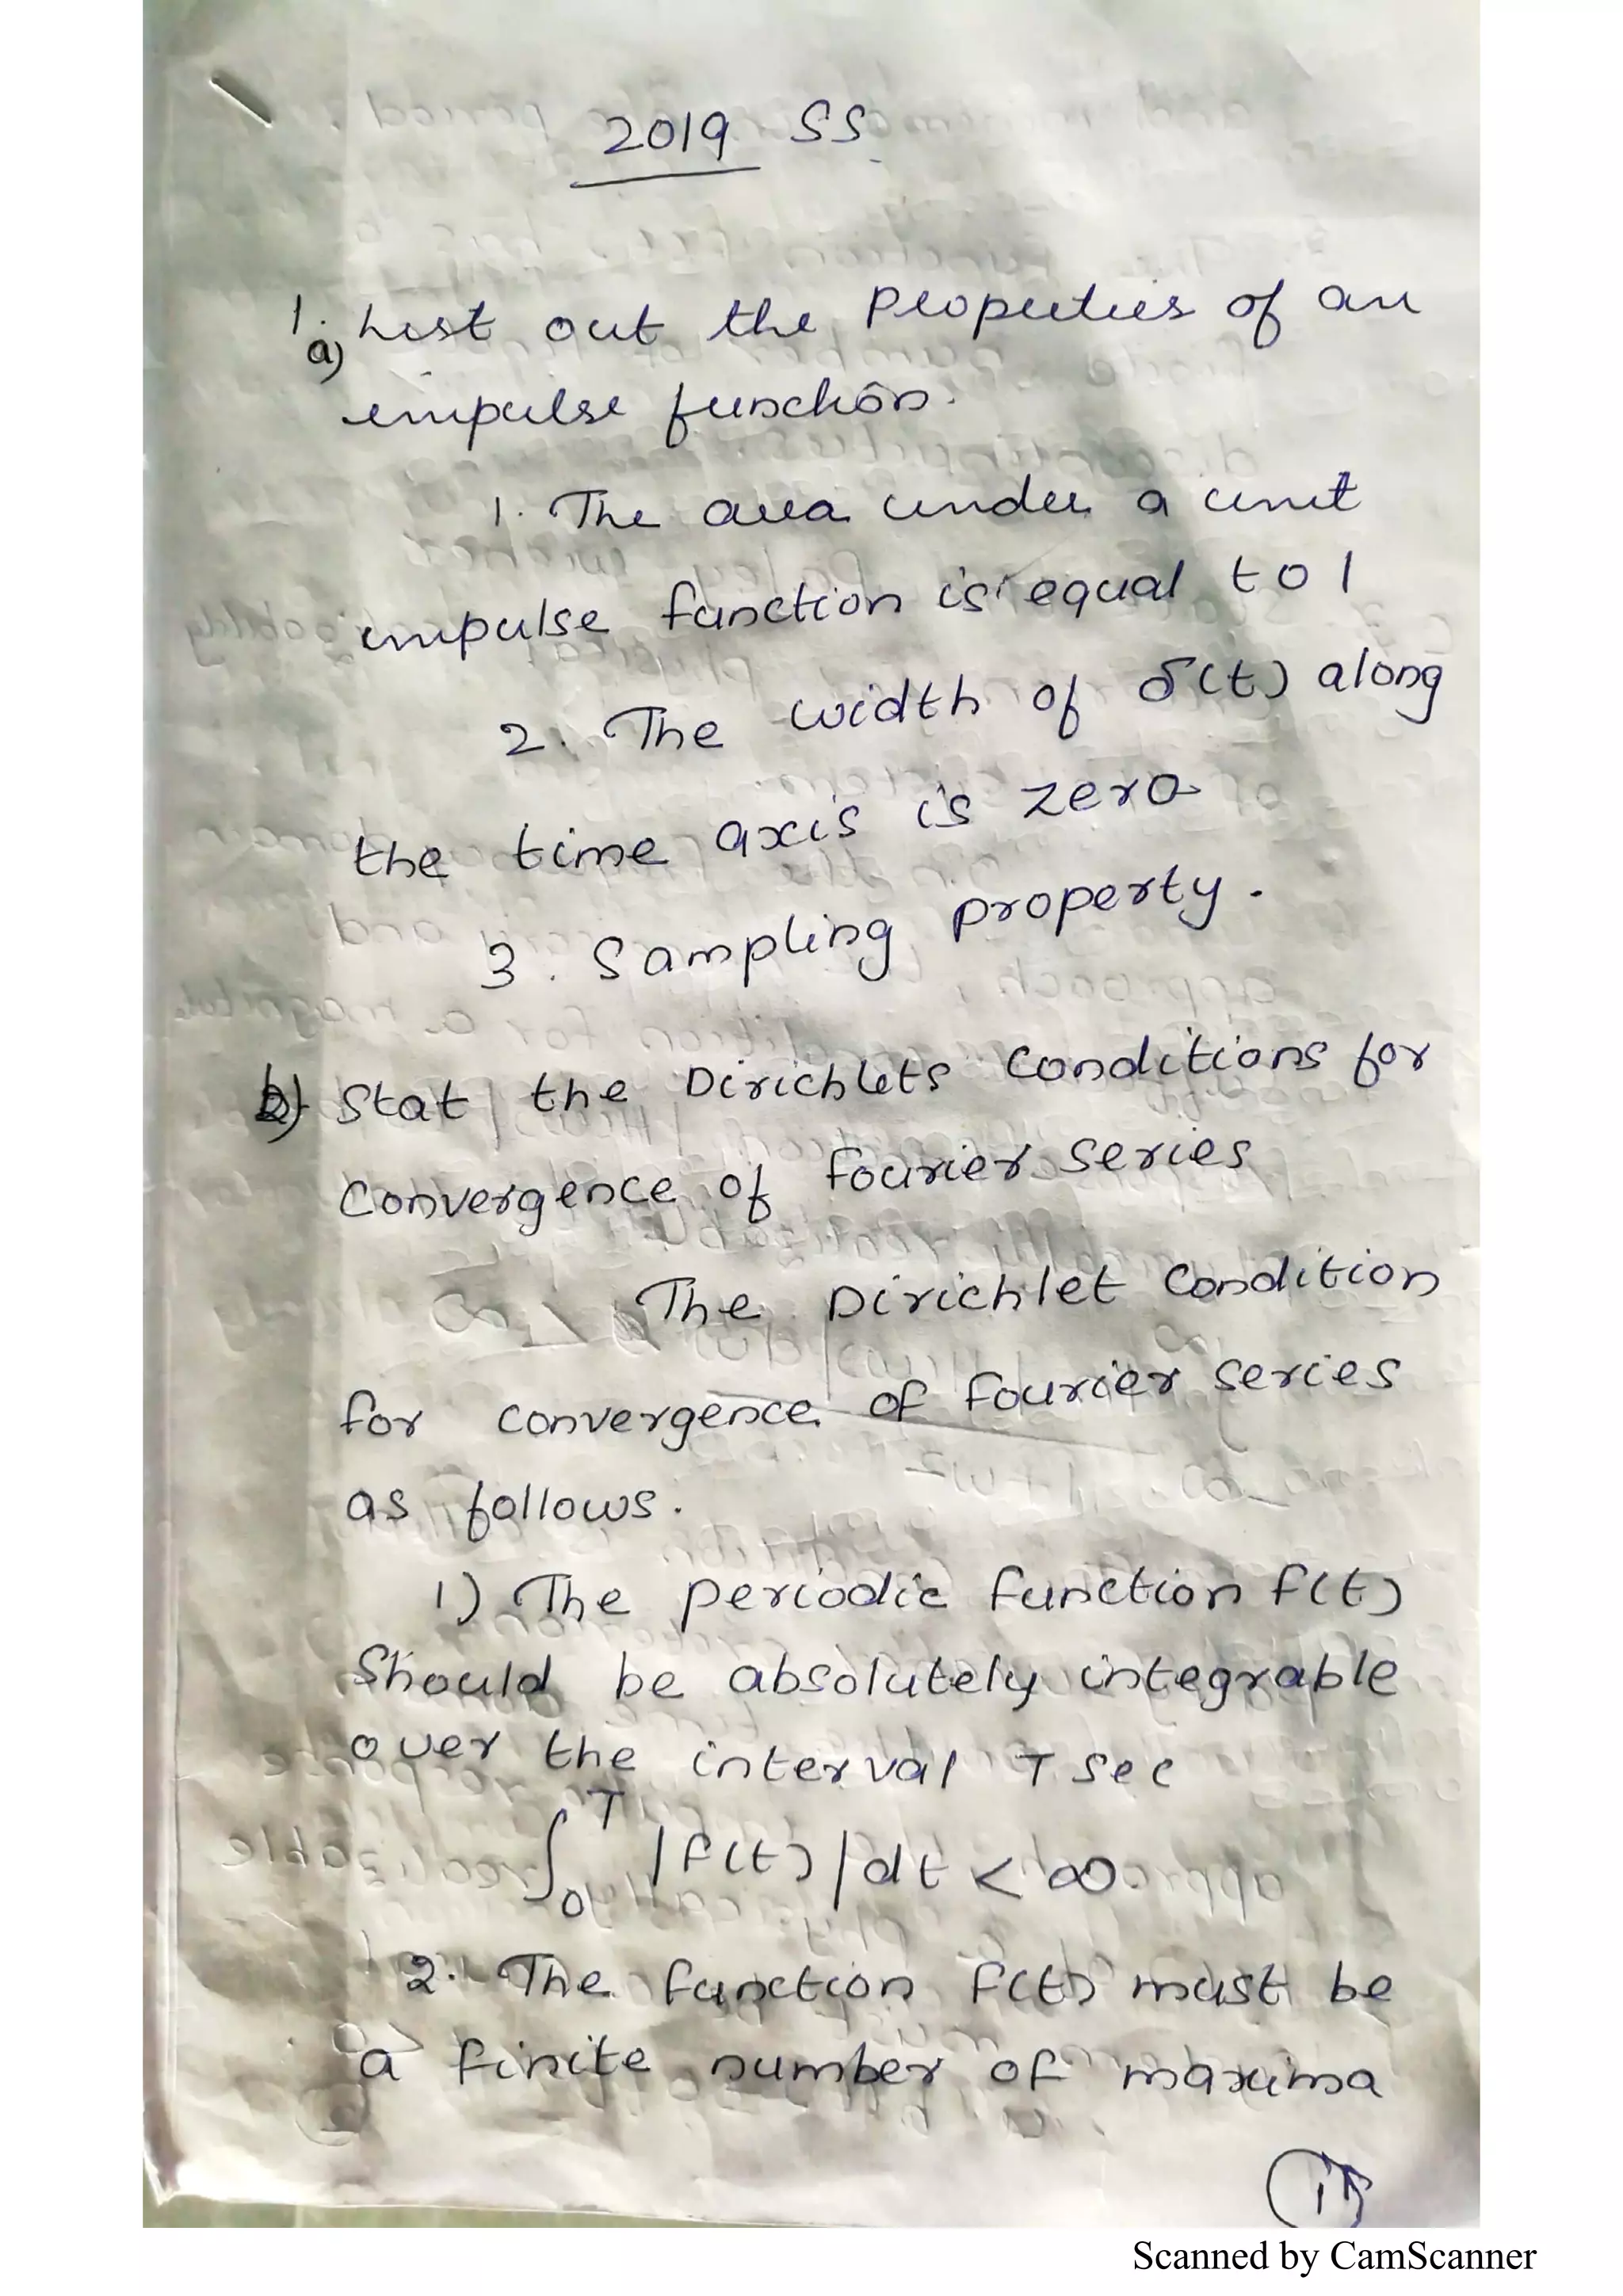 2019 SS
1. List out the Properties of an
a)
impulse function.
1. The area under a unit
impulse function is equal to 1
2. The width of δ(t) along
the time axis is zero
3. Sampling property.
b) Stat the Dirichlets Conditions for
Convergence of Fourier Series
The Dirichlet Condition
for convergence of Fourier Series
as follows.
1) The periodic function f(t)
Should be absolutely integrable
over the interval T sec
∫₀ᵀ |f(t)|dt < ∞
2. The function f(t) must be
a finite number of maxima
Scanned by CamScanner